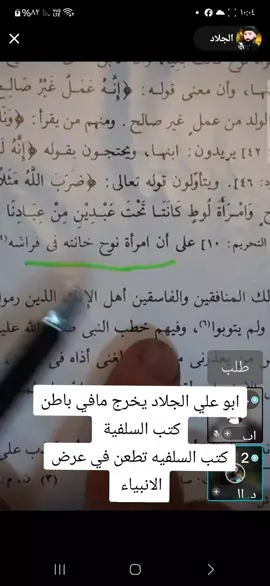 ١٠:٠٤
٨٢%
الجلاد
نها، وأن معنى قوله: ﴿إِنَّهُ عَمَلٌ غَيْرُ صَالِحٍ
الولد من عمل غير صالح. ومنهم من يقرأ: ﴿وَنَا
٤٢] يريدون: ابنها، ويحتجون بقوله ﴿إِنَّهُ لَ
٤٦]. ويتأولون قوله تعالى: ﴿ضَرَبَ اللَّهُ مَثَلًا
وَامْرَأَةَ لُوطٍ كَانَتَا تَحْتَ عَبْدَيْنِ مِنْ عِبَادِنَا
التحريم: ١٠] على أن امرأة نوح خانته في فراشه
لك المنافقين والفاسقين أهل الإفك الذين رموا
ولم يتوبوا(٦)، وفيهم خطب النبي صلى الله عليه
أذاه في
طلب
ابو علي الجلاد يخرج مافي باطن
كتب السلفية
كتب السلفيه تطعن في عرض
الانبياء
2
(٣)